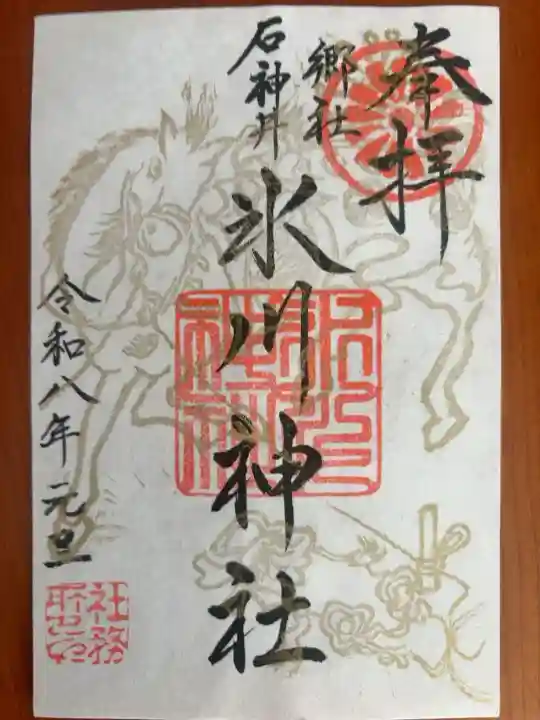 奉拝
郷社
石神井
氷川神社
令和八年元旦
氷川神社
社務所印